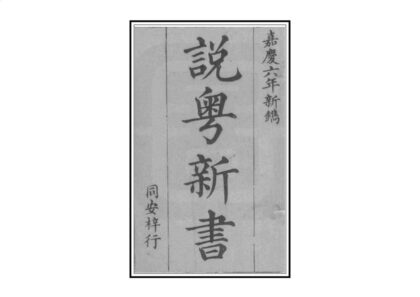 嘉慶六年新鐫
說粤新書
同安梓行